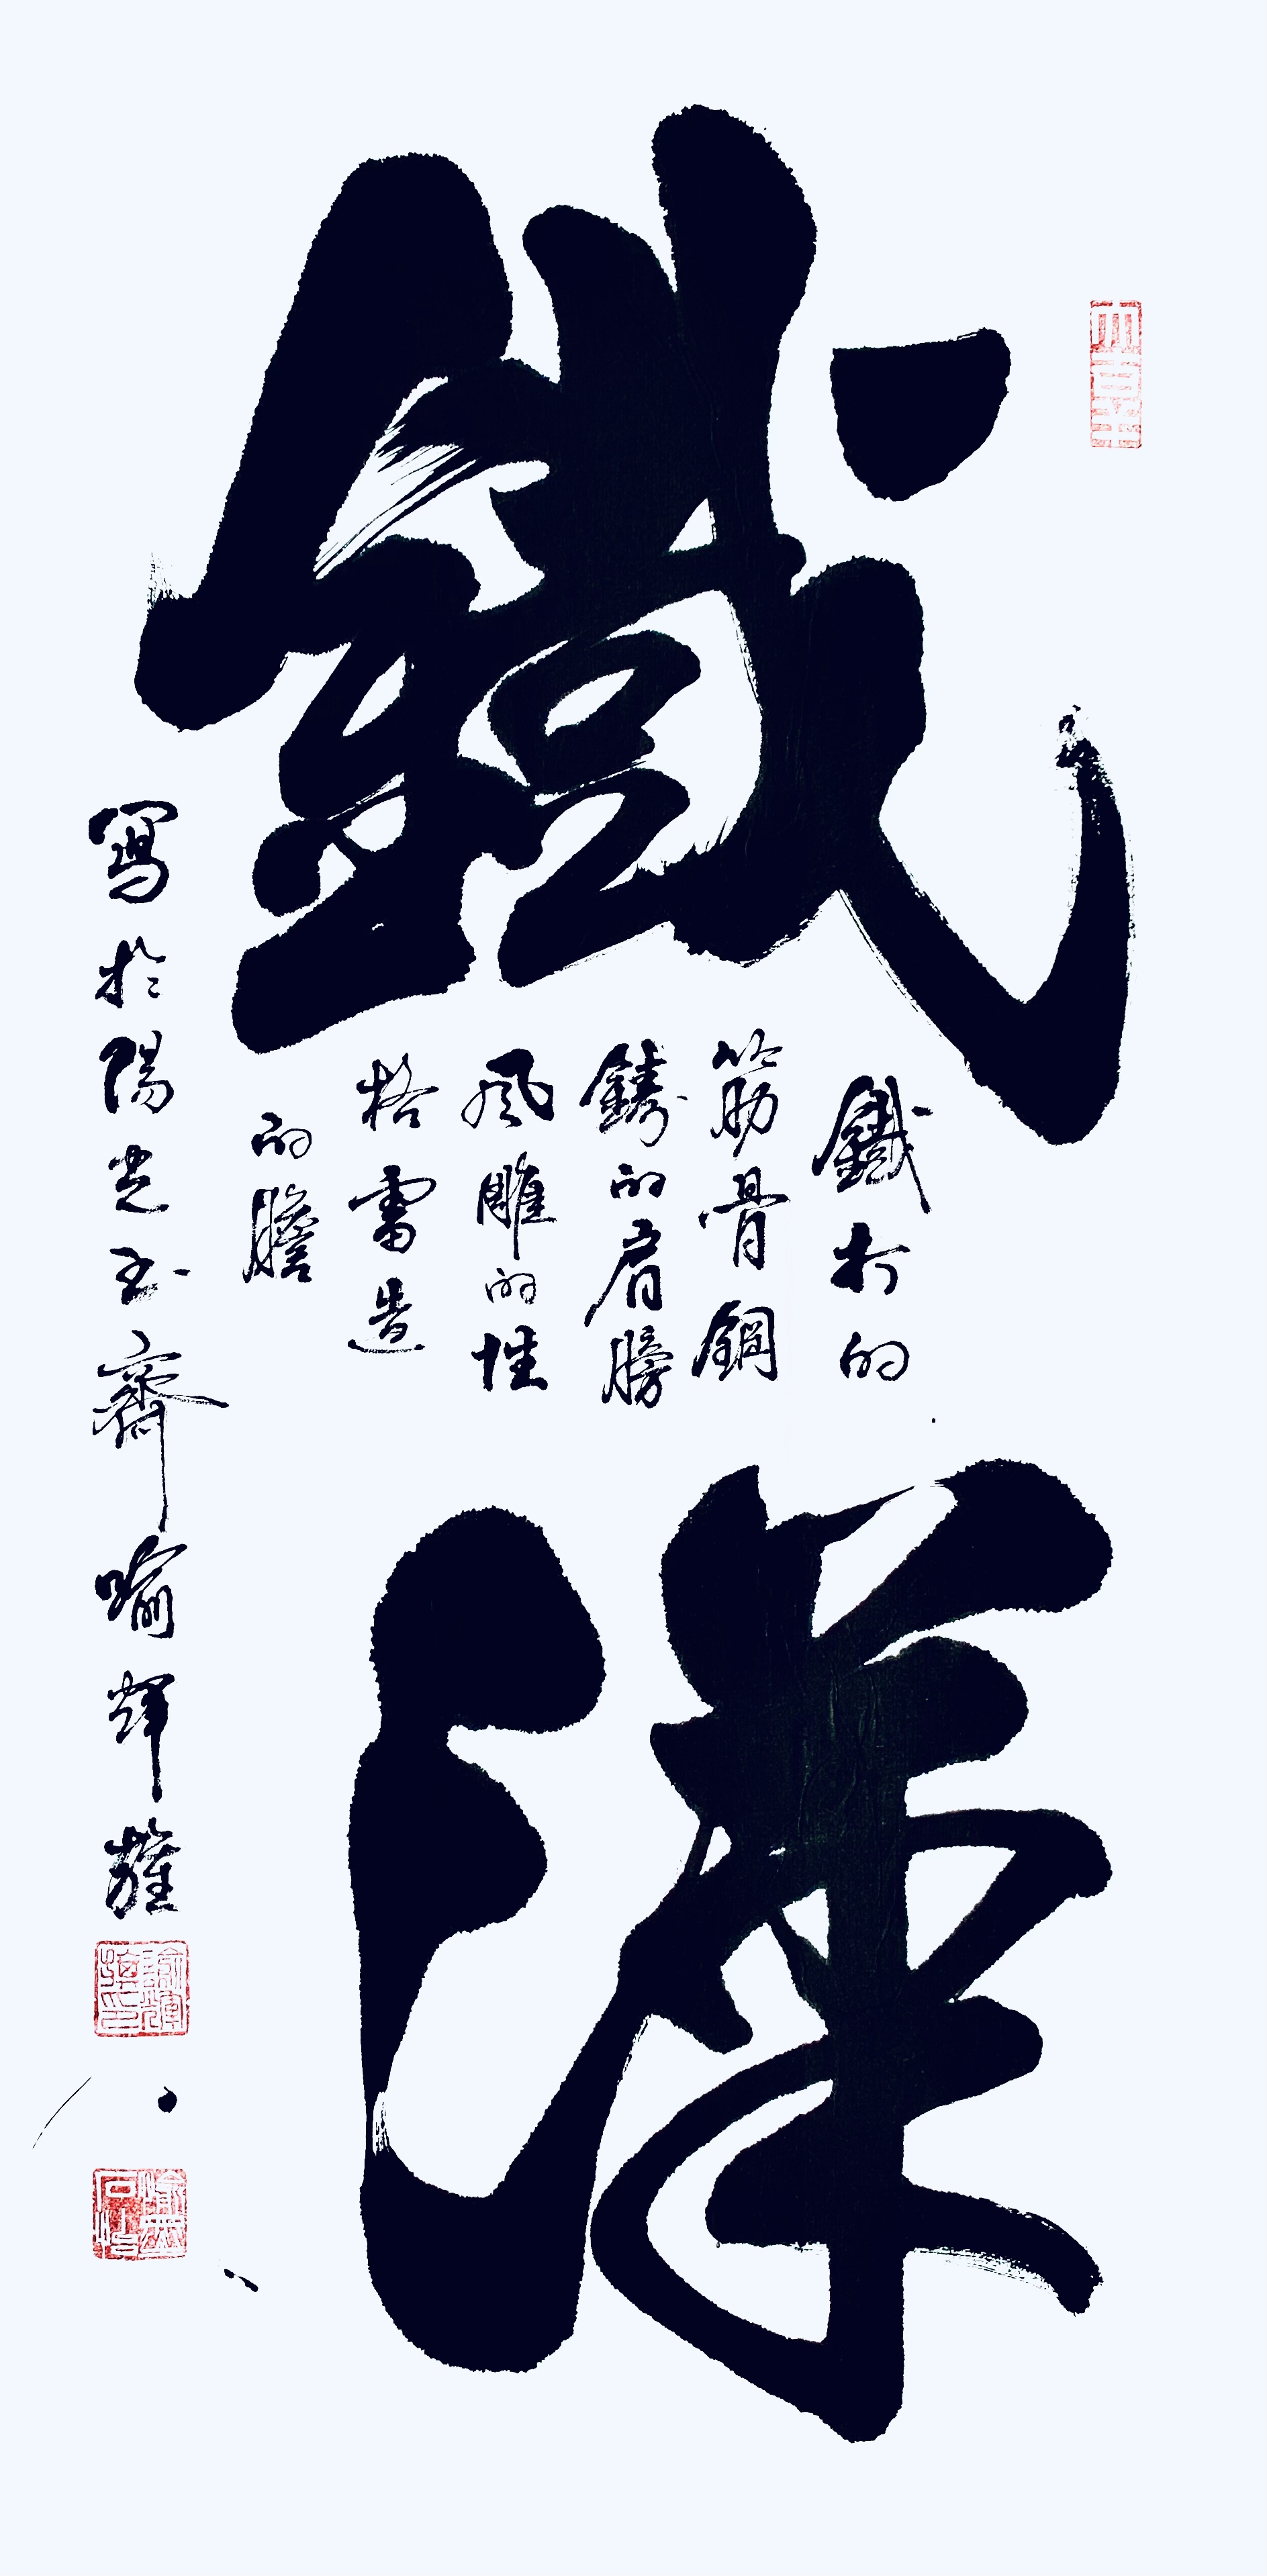 鐵漢
鐵打的
筋骨鋼
鑄的肩膀
風雕的性
格雷造
的膽
寫於陽光玉齋喻輝
大吉羊